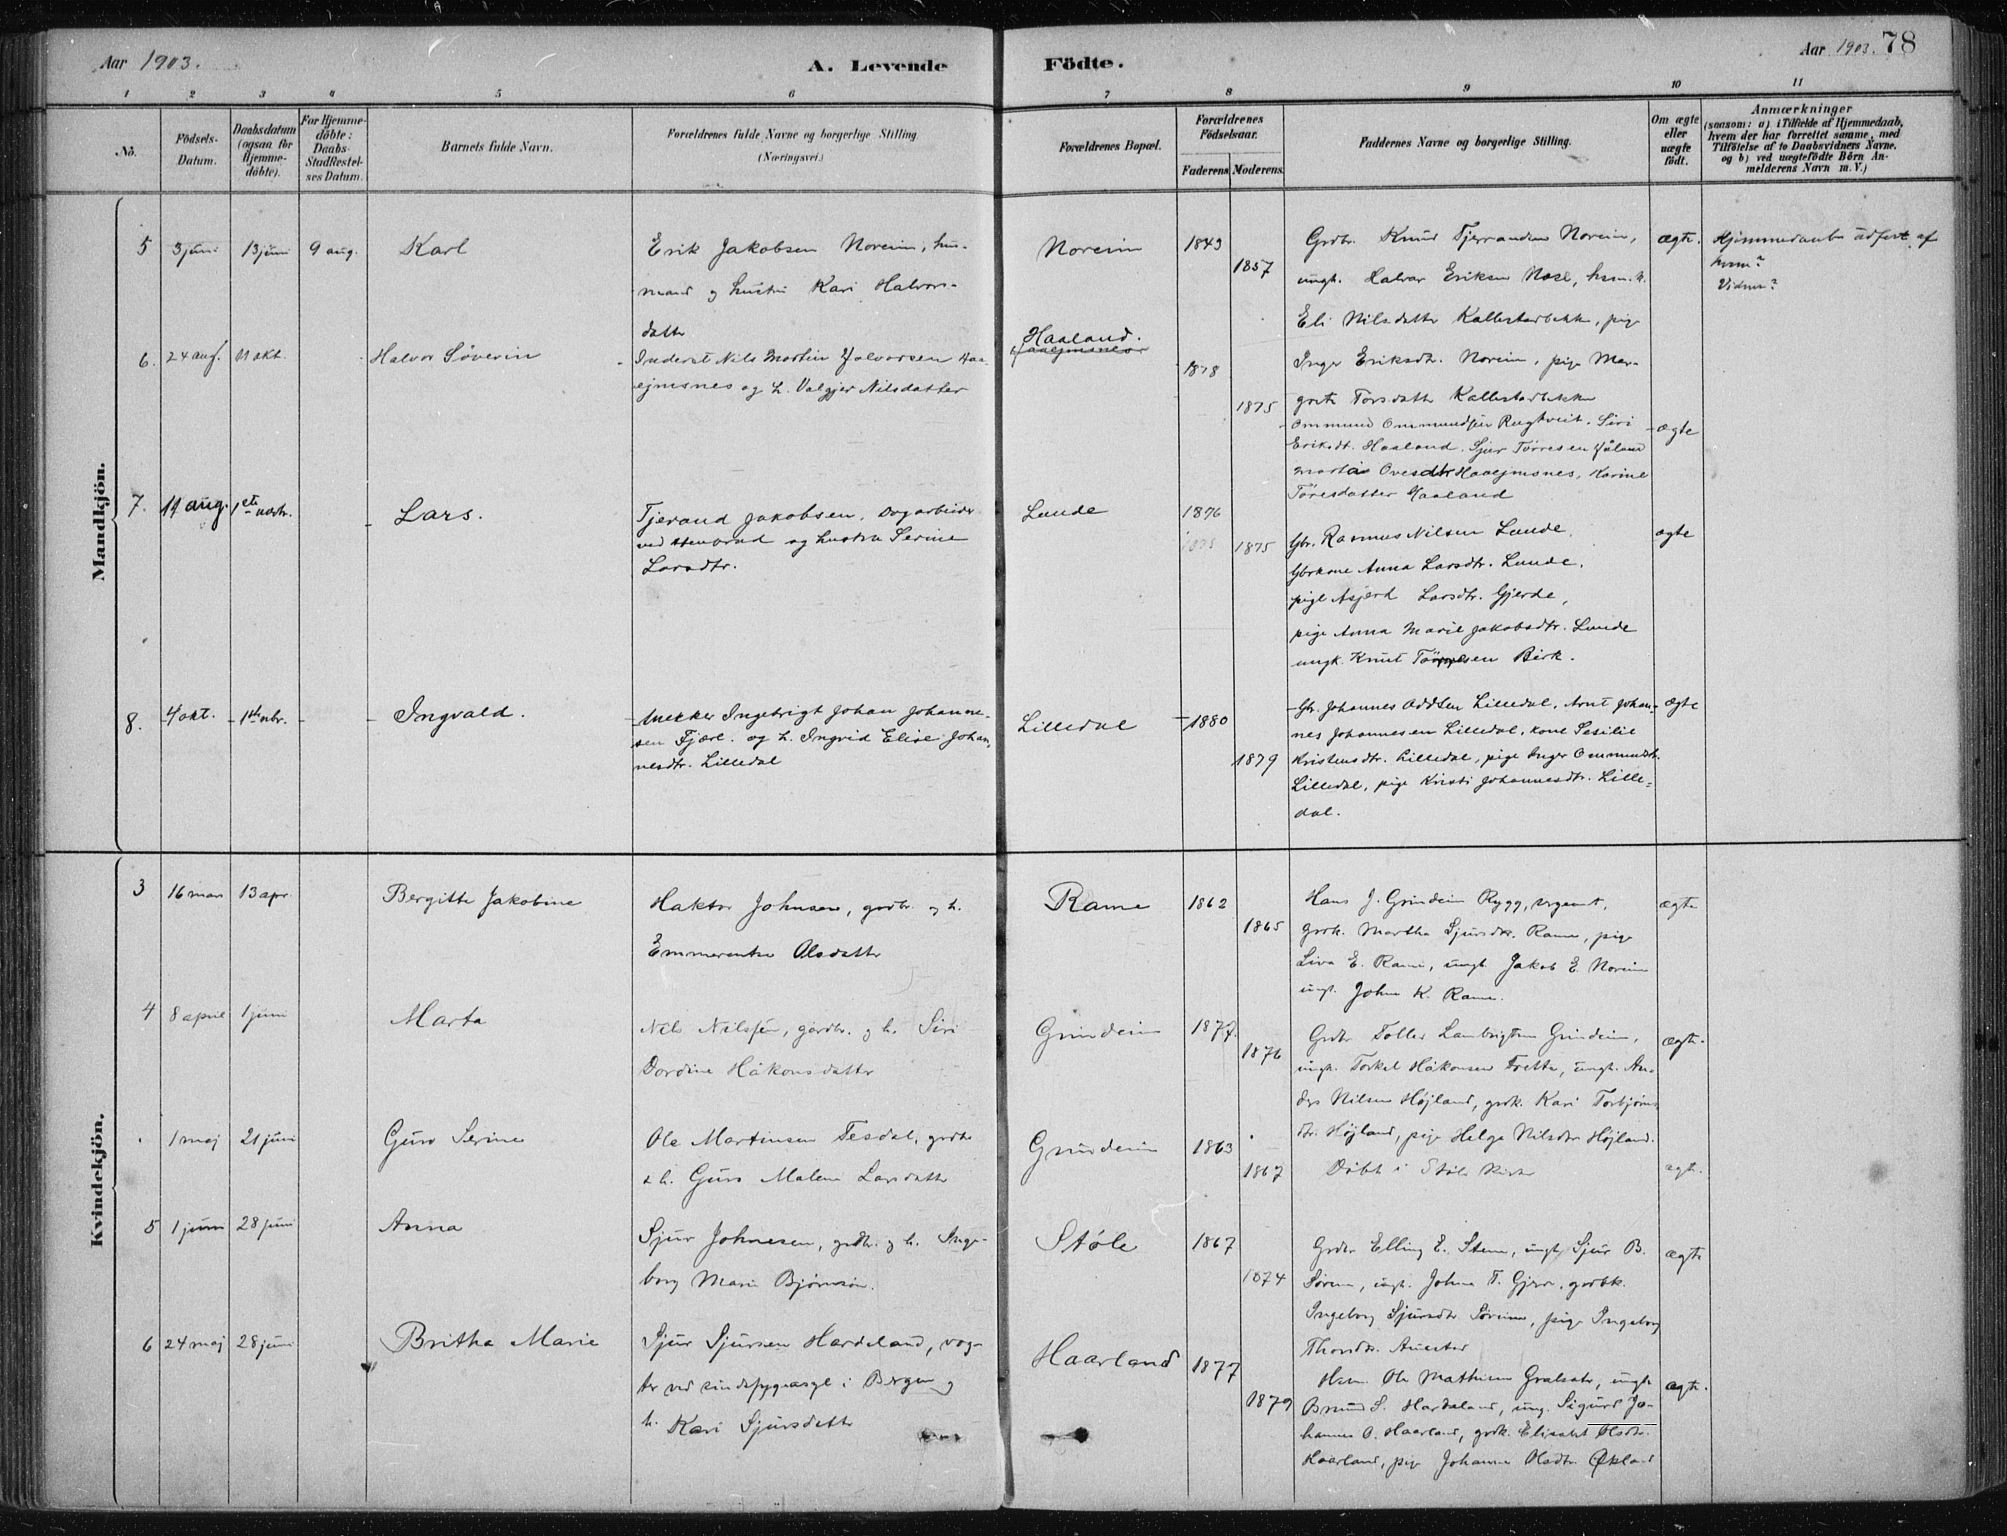 Aar 1903.
A. Levende
Födte.
Aar 1903. 78
1 2 3 4 5 6 7 8 9 10 11
No.
Födsels-
Datum.
Daabsdatum
(ogsaa for
Hjemme-
döbte).
For Hjemme-
döbte:
Daabs-
Stadfæstel-
ses Datum.
Barnets fulde Navn.
Forældrenes fulde Navne og borgerlige Stilling.
(Næringsvei.)
Forældrenes Bopæl.
Forældrenes
Födselsaar.
Faderens Moderens.
Faddernes Navne og borgerlige Stilling.
Om ægte
eller
uægte
födt.
Anmærkninger
(saasom: a) i Tilfælde af Hjemmedaab,
hvem der har forrettet samme, med
Tilföielse af to Daabsvidners Navne.
og b) ved uægtefödte Börn An-
melderens Navn m. V.)
Mandkjön.
5 3 juni 13 juni 9 aug. Karl
Erik Jakobsen Noreim, hus-
mand og hustru Kari Halvors-
datter
Noreim
1843
1857
Grdbr. Knud Noreim,
ungk. Halvar Eriksen
Eli Nilsdatter Kallestadbekke, pige
Inger Eriksdtr. Noreim, pige Mar-
grete Torsdatter Kallestadbekke
ægte.
Hjemmedaaben udført af
hvem?
Vidner?
6. 24 aug. 11 okt.
Halvor Søverin
Inderst Nils Martin Halvorsen Haa-
ejmsnes og h. Valgjer Nilsdatter
Haaland.
1878
1875
Ommund Ommundsen Rugtveit. Siri
Eriksdt. Haaland. Sjur Tørresen
Marta Ovesdtr Haaejmsnes, Karine
Tøresdatter Haaland
ægte
7. 11 aug. 1ste
Lars.
Tjerand Jakobsen, Dagarbeider
ved og hustru Serine
Larsdtr.
Lunde
1876
1875 1875
Gbr. Rasmus Nilsen Lunde,
Gbrkone Anna Larsdtr. Lunde,
pige Asjerd Larsdtr. Gjerde,
pige Anna Marie Jakobsdtr. Lunde
ungk. Knut Birk.
ægte
8. 4 okt.
Ingvald.
Ingebrigt Johan Johanne-
sen Fjære. og h. Ingrid Elise Johan-
nesdtr. Lilledal
Lilledal
1880
1879
Gbr. Johannes Oddsen Lilledal, Arnt Johan-
nes Johannesen Lilledal, kone Sesilie
Kristensdtr. Lilledal, pige Inger Ommundsdtr.
Lilledal, pige Kristi Johannesdtr. Lille-
dal.
ægte
Kvindekjön.
3 16 mars 13 apr
Bergitte Jakobine
Haktor Johnsen, grdbr. og h.
Emmerentse Olsdatter
Rame
1862
1865
Hans J. Grindeim Rygg, sergeant,
grdk. Martha Sjursdtr. Rame, pige
Siva E. Rame, ungk. Jakob E. Noreim
ungk. John K. Rame.
ægte
4 8 april 1 juni
Marta
Nils Nilssen, gårdbr. og h. Siri
Dordine Håkonsdatter
Grindeim
1877.
1876
Grdbr Tollef Lambrigtsen Grindeim,
ungk. Torkel Håkonsen Frette, ungk. An-
ders Nilsen Højland, grdk. Kari Torbjørns-
dtr. Højland, pige Helga Nilsdtr Højland.
ægte.
1 maj 21 juni
Guro Serine
Ole Martinsen Tesdal, grdbr
& h. Guro Malene Larsdatter
Grindeim
1863
1867
Døbt i Støle kirke
ægte.
5 1 juni 28 juni
Anna
Sjur Johnesen, grdbr. og h. Inge-
borg Marie Bjørnsön.
Støle
1867
1874
Grdbr Elling E. Stene, ungk. Sjur B.
Søreim, ungk. Johne T. Gjere, grdbk.
Ingeborg Sjursdtr Søreim, pige Ingeborg
Thorsdtr.
ægte
6 24 maj 28 juni
Britha Marie
Sjur Sjursen Hardeland, vog-
ter ved sindssygeasyl i Bergen og
h. Kari Sjursdatter
Haarland
1877
1879
Hsm Ole Mathisen ungk
Hardeland, ung. Sigurd Jo-
hannes O. Haarland, grdk. Elisabet Olsdtr.
Haarland, pige Johanne Olsdtr. Økland
ægte.